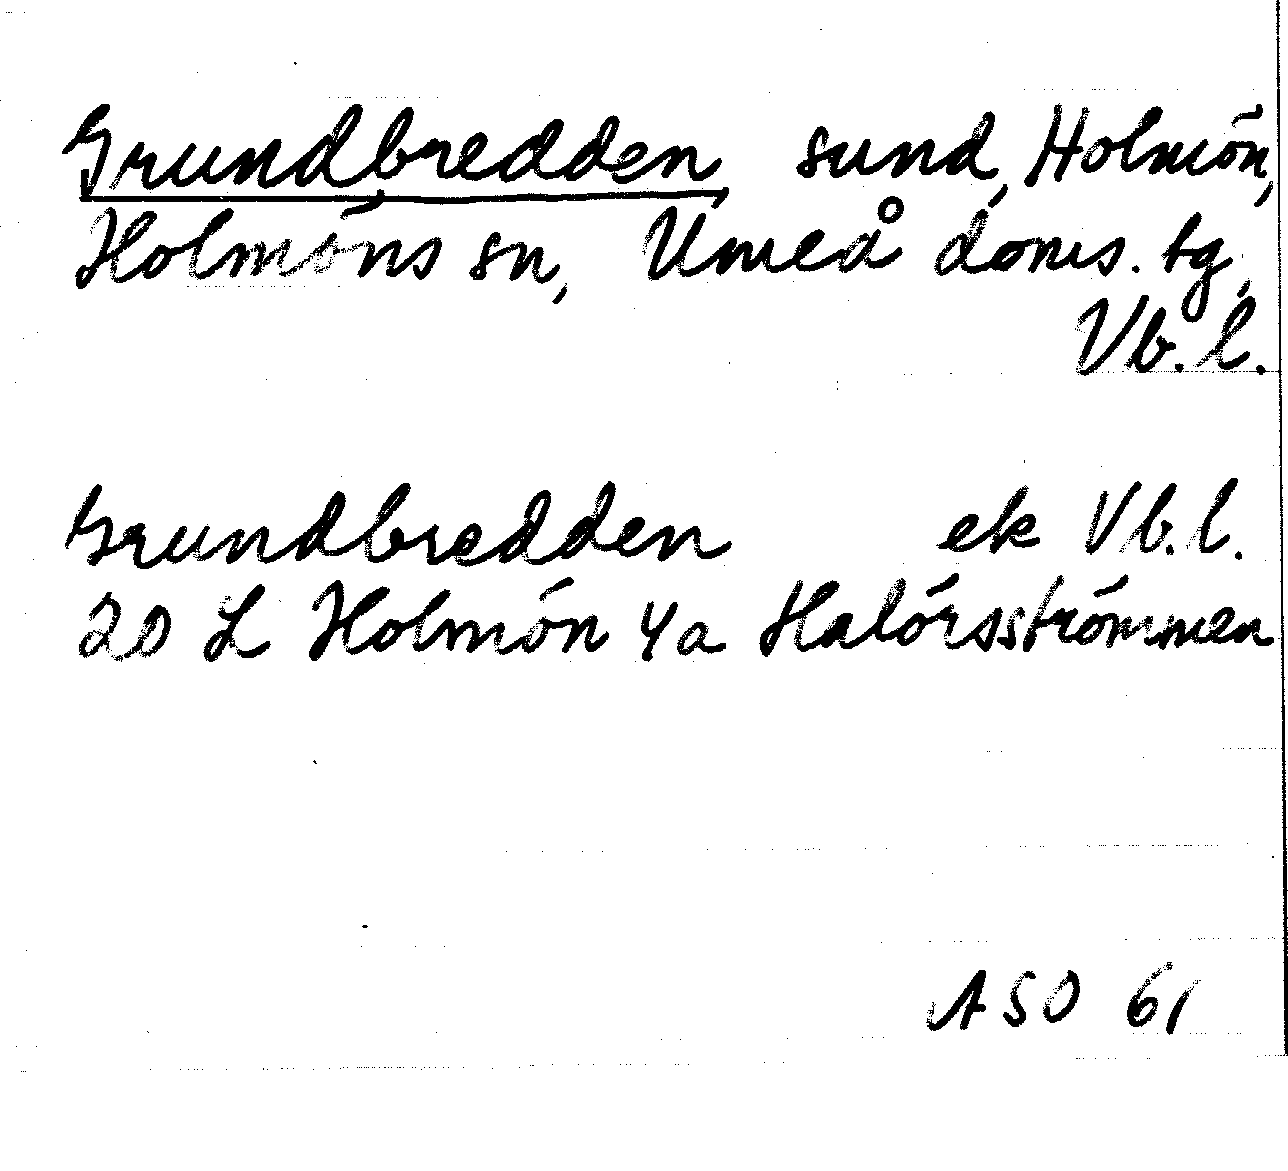 Grundbredden, sund, Holmön,
Holmöns sn, Umeå doms. tg,
Vb. l.
Grundbredden ek Vb. l.
20 L Holmön 4a Halörsströmmen
ASO 61